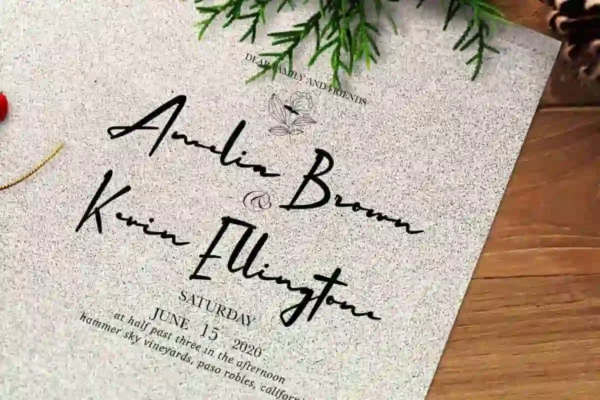 DEAR FAMILY AND FRIENDS
Amelia Brown
@
Kevin Ellingtone
SATURDAY
JUNE 15 2020
at half past three in the afternoon
hammer sky vineyards, paso robles, californi